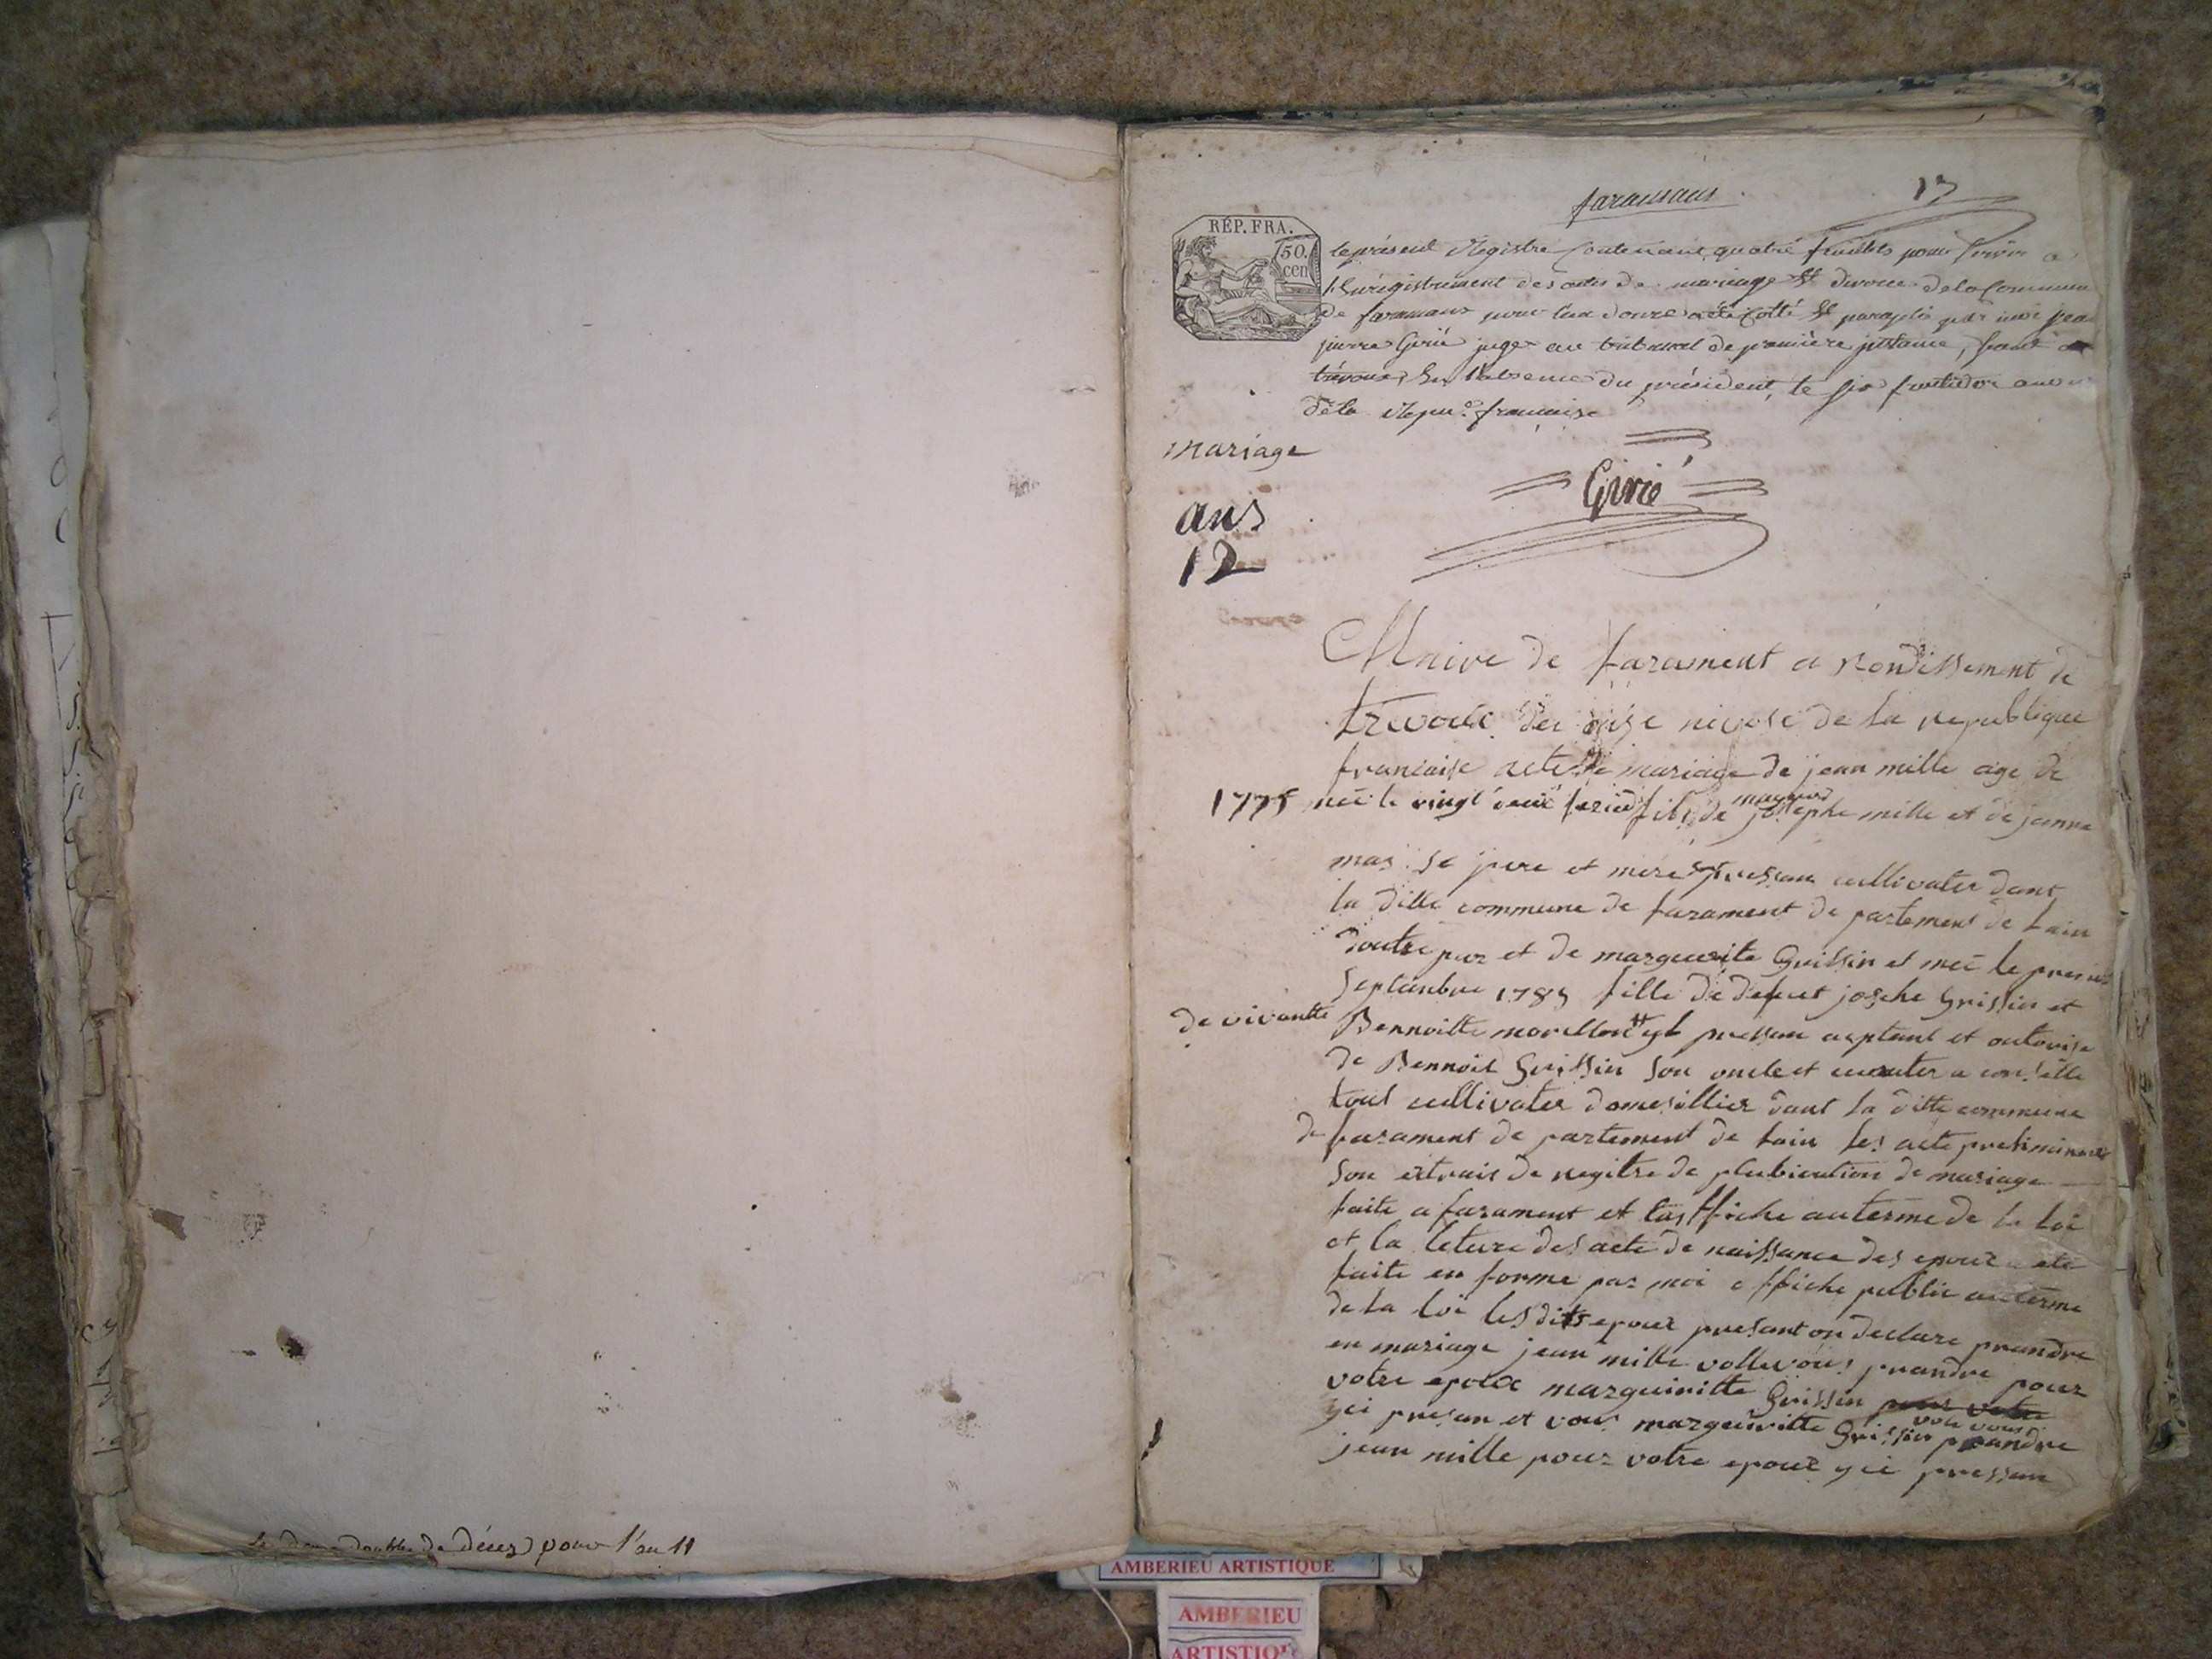 faramans
13
RÉP. FRA.
50.
cen
le présent Registre contenant quatre feuillets pour servir a
l'Enregistrement des actes de mariage et divorce de la Commune
de faramans pour l'an douze a été cotté et paraphé par moi jean
pierre Girié juge au tribunal de première instance, séant a
trévoux, En l'absence du président, le six fructidor an
de la Repu.e française
mariage
Girié
ans
12
Maire de farament a rondissement de
trevoux du nivose de la republique
francaise acte de mariage de jean mille age de
1775 neé le vingt deux fevrié fils de josephe mille et de jeanne
mas se pere et mere pressan cullivater dans
la ditte commune de farament de partement de lain
doutre par et de marguerite Grissin et neé le premié
septembre 1785 fille de defuet josephe Grissin et
de vivantte Bennoitte morellon et pressan aeptant et outorise
de Bennoit Grissin son oncle et
tout cullivater domesillier dans la ditte commune
de farament de partement de lain les acte preliminere
son extrais de regitre de plubication de mariage
faite a farament et lasffiche au terme de la loi
et la leture des acte de naissance des epoux a ete
faite en forme par moi offiche public au terme
de la loi les dits epoux presant on declare prandre
en mariage jean mille vollevous prandre pour
votre epoux marguiritte Grissin pour votre
yci presan et vous margeuritte Grissin vole vous prandre
jean mille pour votre epoux yci pressan
Le double de décez pour l'an 11
AMBERIEU ARTISTIQUE
AMBERIEU
ARTISTIQUE